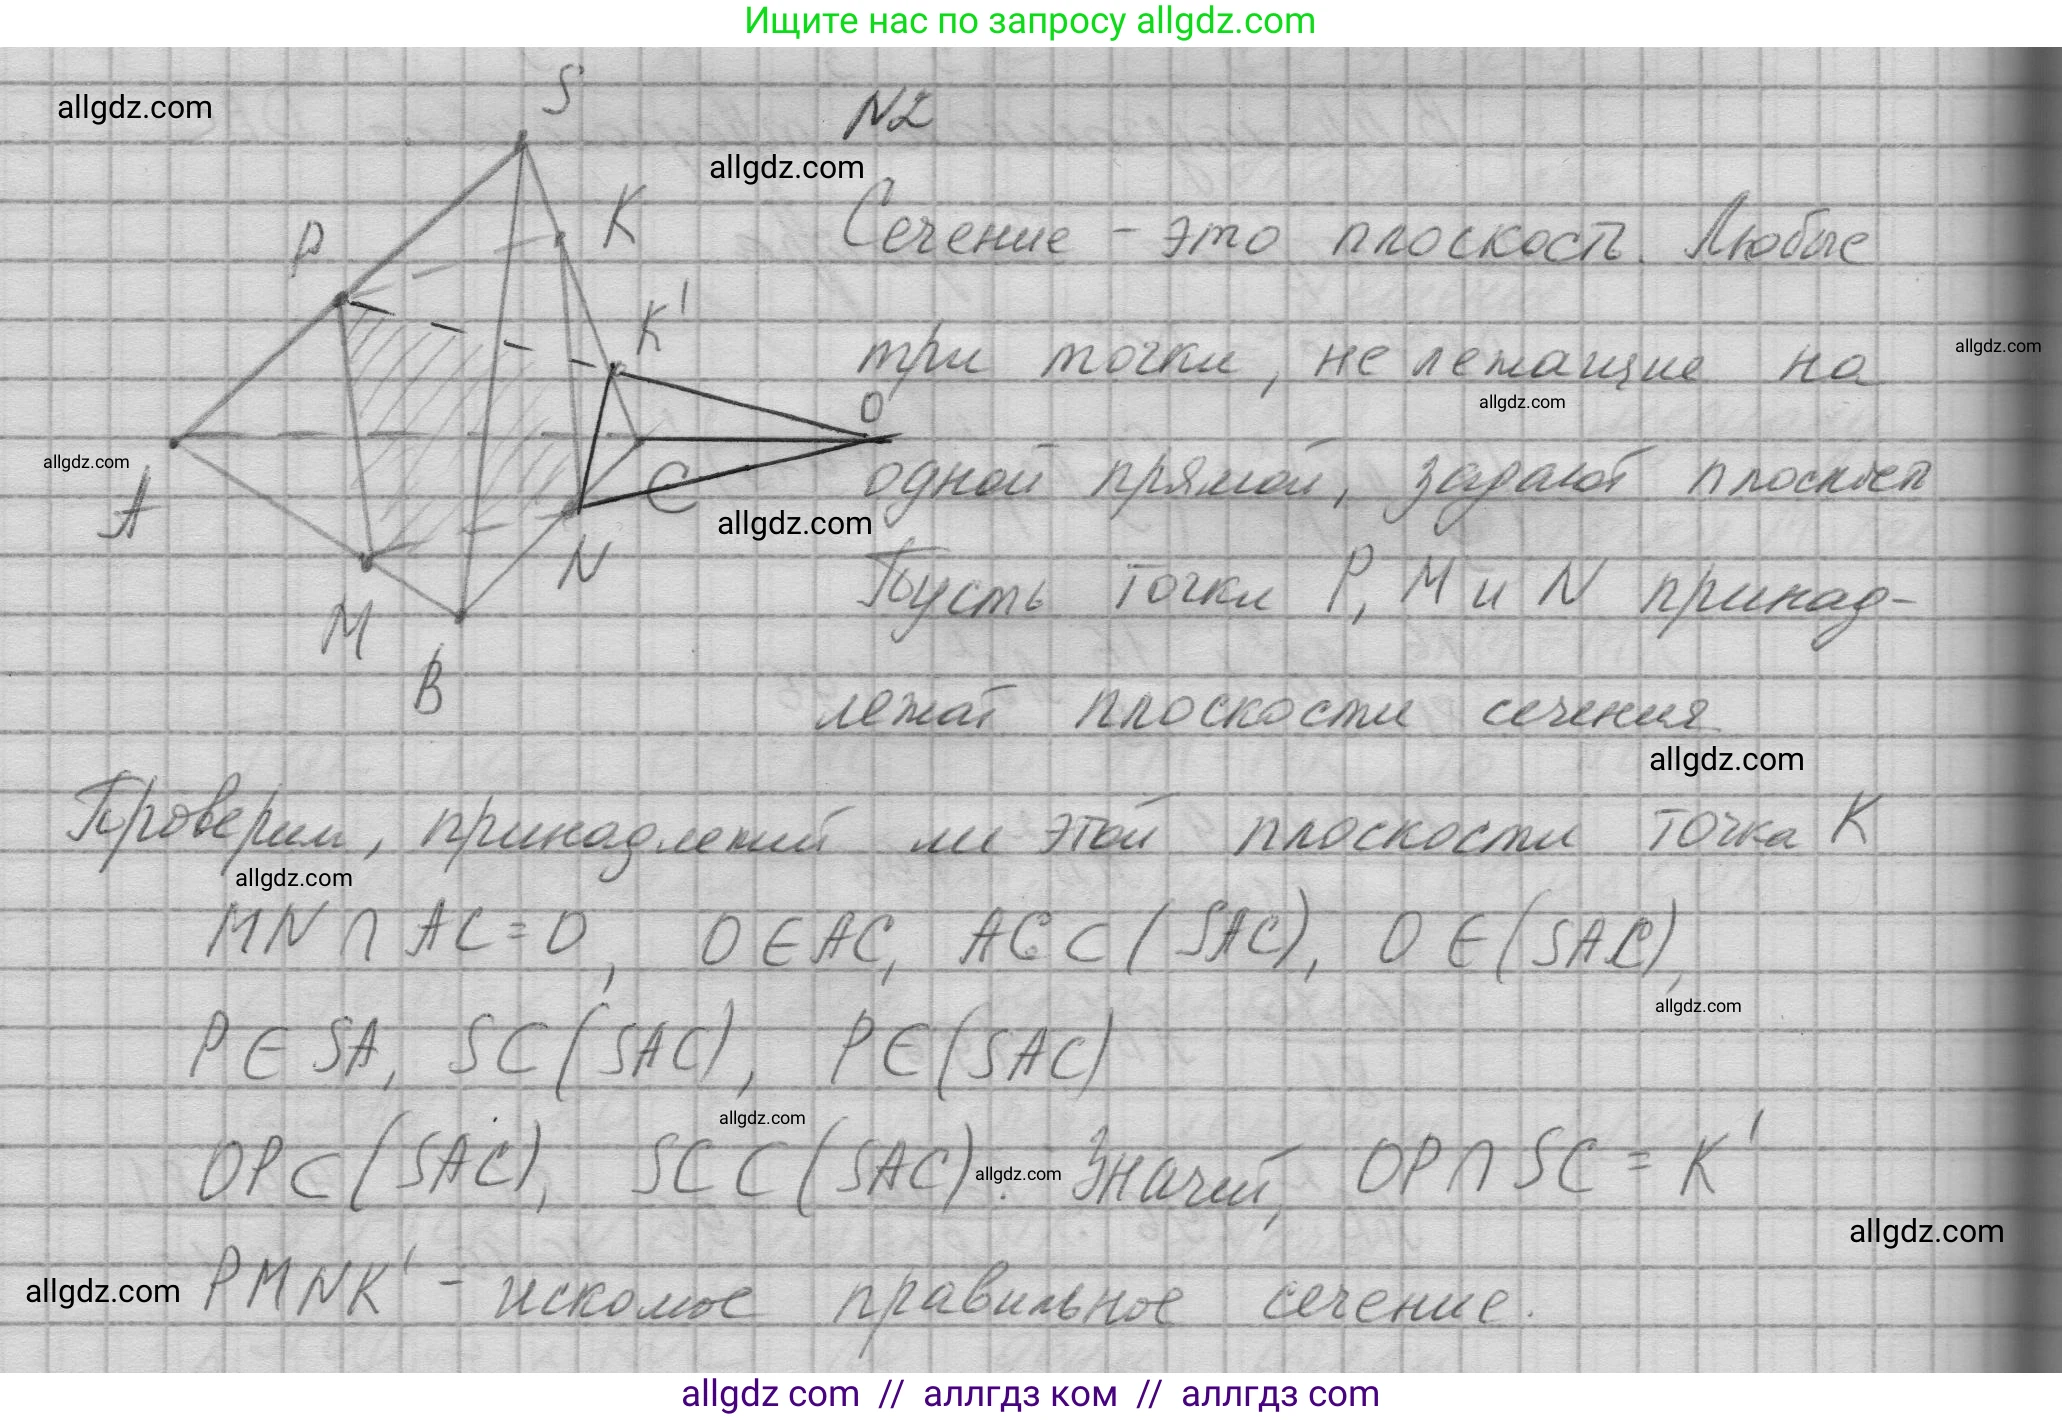 Ищите нас по запросу allgdz.com
S
allgdz.com
N2
allgdz.com
K
Сечение - это плоскость. Любые
P
K'
три точки, не лежащие на
allgdz.com
O
allgdz.com
allgdz.com
A
C
одной прямой, задают плоскость
allgdz.com
N
Пусть точки P, M и N принад-
M
B
лежат плоскости сечения
allgdz.com
Проверим, принадлежит ли этой плоскости точка K
allgdz.com
MN ∩ AC = O, O ∈ AC, AC ⊂ (SAC), O ∈ (SAC),
allgdz.com
P ∈ SA, SC (SAC), P ∈ (SAC)
allgdz.com
OP ⊂ (SAC), SC ⊂ (SAC). Значит, OP ∩ SC = K'
allgdz.com
allgdz.com
allgdz.com
PMNK' - искомое правильное сечение.
allgdz com // аллгдз ком // аллгтз com